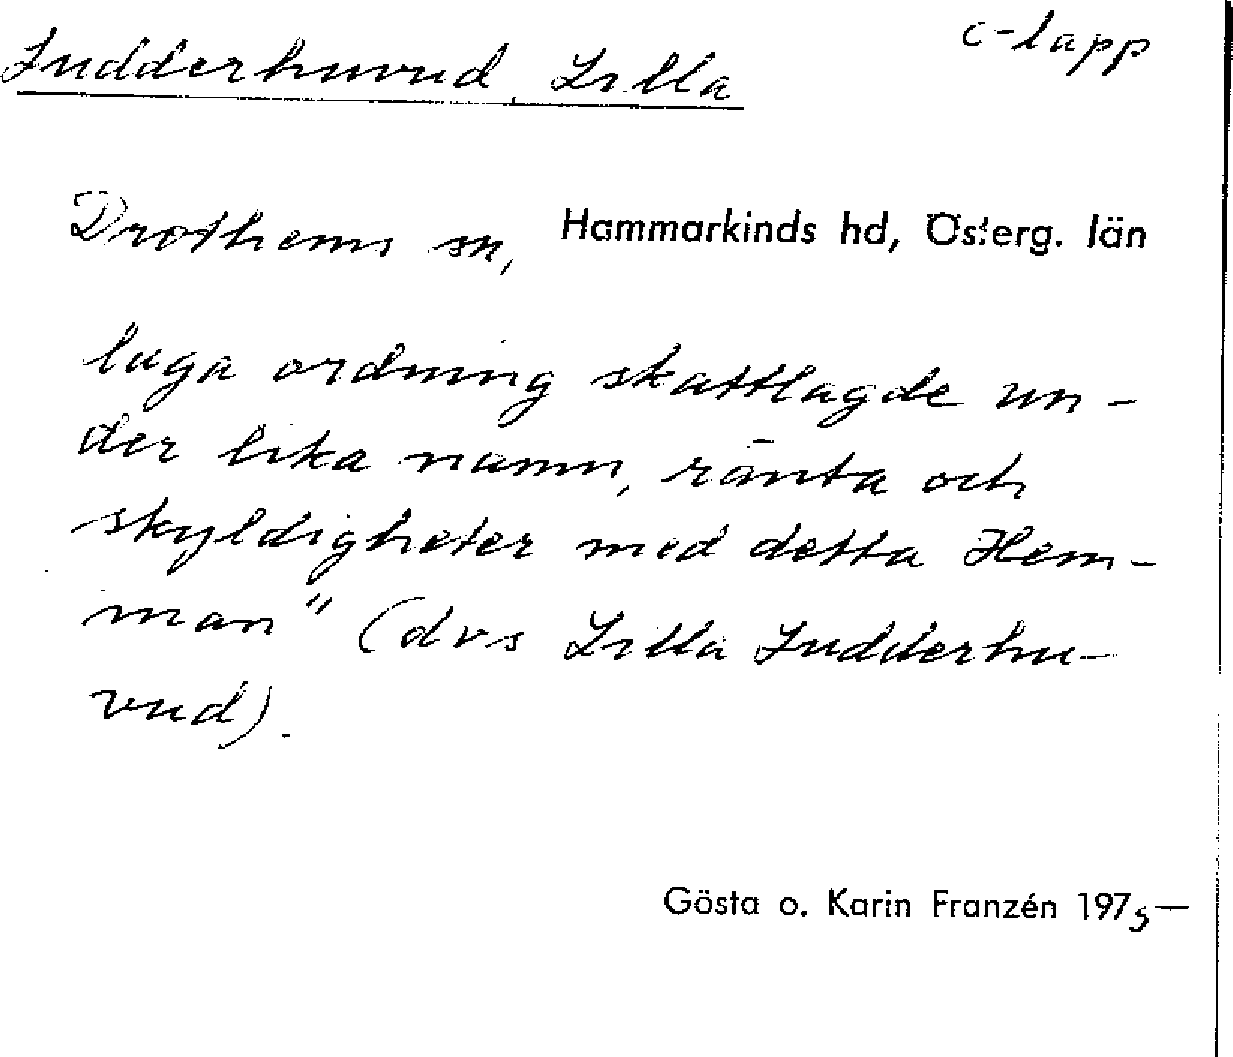 Judderhuvud, Lilla c-lapp
Drothems sn, Hammarkinds hd, Österg. län
laga ordning skattlagde un-
der lika namn, ränta och
skyldigheter med detta Hem-
man" (dvs Lilla Judderhu-
vud).
Gösta o. Karin Franzén 1975—